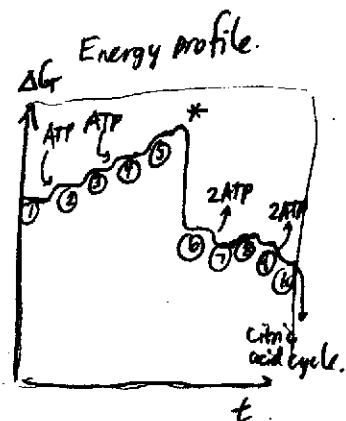 Energy profile.
ΔG
ATP ATP *
① ② ③ ④ ⑤
2ATP
2ATP
⑥ ⑦ ⑧ ⑨ ⑩
Citric
acid cycle.
t